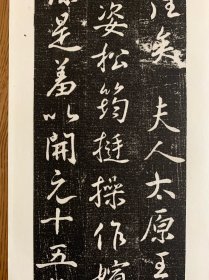 矣夫人太原王
姿松筠挺操作嫔
是羞以開元十五